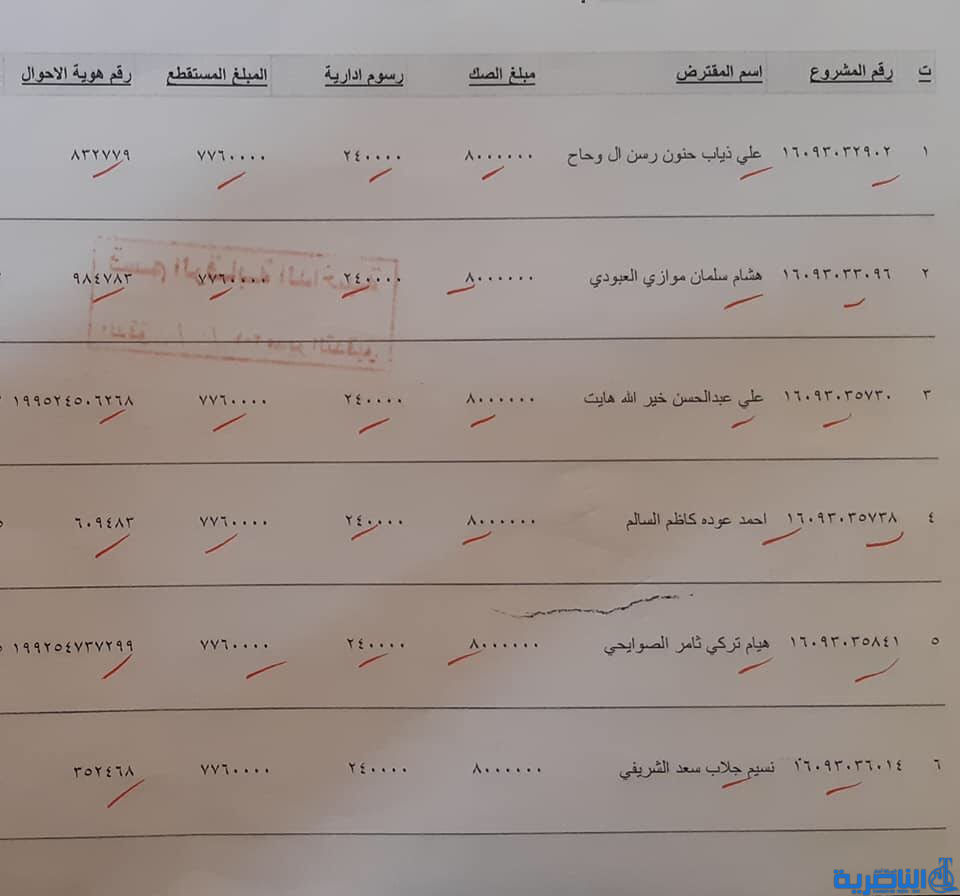 ت رقم المشروع اسم المقترض مبلغ الصك رسوم ادارية المبلغ المستقطع رقم هوية الاحوال
١ ١٦٠٩٣٠٣٢٩٠٢ علي ذياب حنون رسن ال وحاح ٨٠٠٠٠٠٠ ٢٤٠٠٠٠ ٧٧٦٠٠٠٠ ٨٣٢٧٧٩
٢ ١٦٠٩٣٠٣٣٠٩٦ هشام سلمان موازي العبودي ٨٠٠٠٠٠٠ ٢٤٠٠٠٠ ٧٧٦٠٠٠٠ ٩٨٤٧٨٣
٣ ١٦٠٩٣٠٣٥٧٣٠ علي عبدالحسن خير الله هايت ٨٠٠٠٠٠٠ ٢٤٠٠٠٠ ٧٧٦٠٠٠٠ ١٩٩٥٢٤٥٠٦٢٦٨
٤ ١٦٠٩٣٠٣٥٧٣٨ احمد عوده كاظم السالم ٨٠٠٠٠٠٠ ٢٤٠٠٠٠ ٧٧٦٠٠٠٠ ٦٠٩٤٨٣
٥ ١٦٠٩٣٠٣٥٨٤١ هيام تركي ثامر الصوايحي ٨٠٠٠٠٠٠ ٢٤٠٠٠٠ ٧٧٦٠٠٠٠ ١٩٩٢٥٤٧٣٧٢٩٩
٦ ١٦٠٩٣٠٣٦٠١٤ نسيم جلاب سعد الشريفي ٨٠٠٠٠٠٠ ٢٤٠٠٠٠ ٧٧٦٠٠٠٠ ٣٥٢٤٦٨
الناصرية